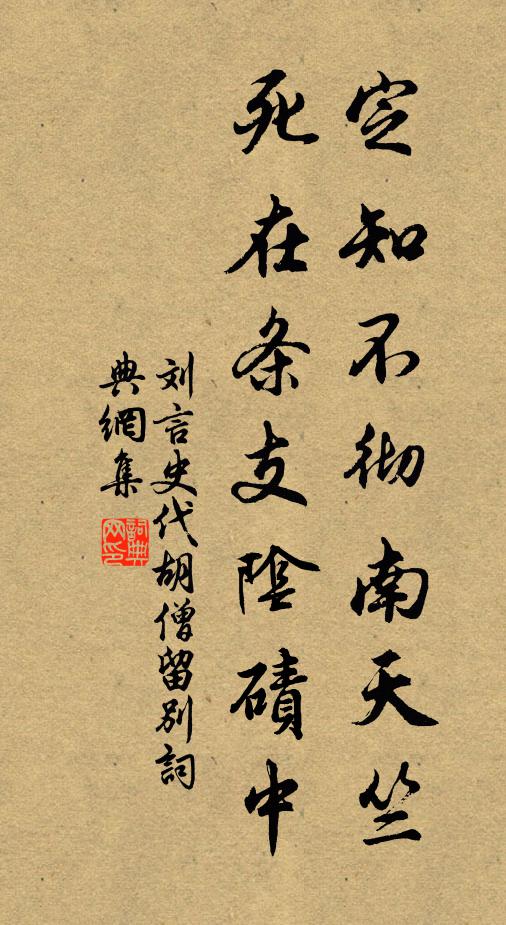 定知不彻南天竺
死在条支阴碛中
刘言史代胡僧留别词
典網集
詞典網印